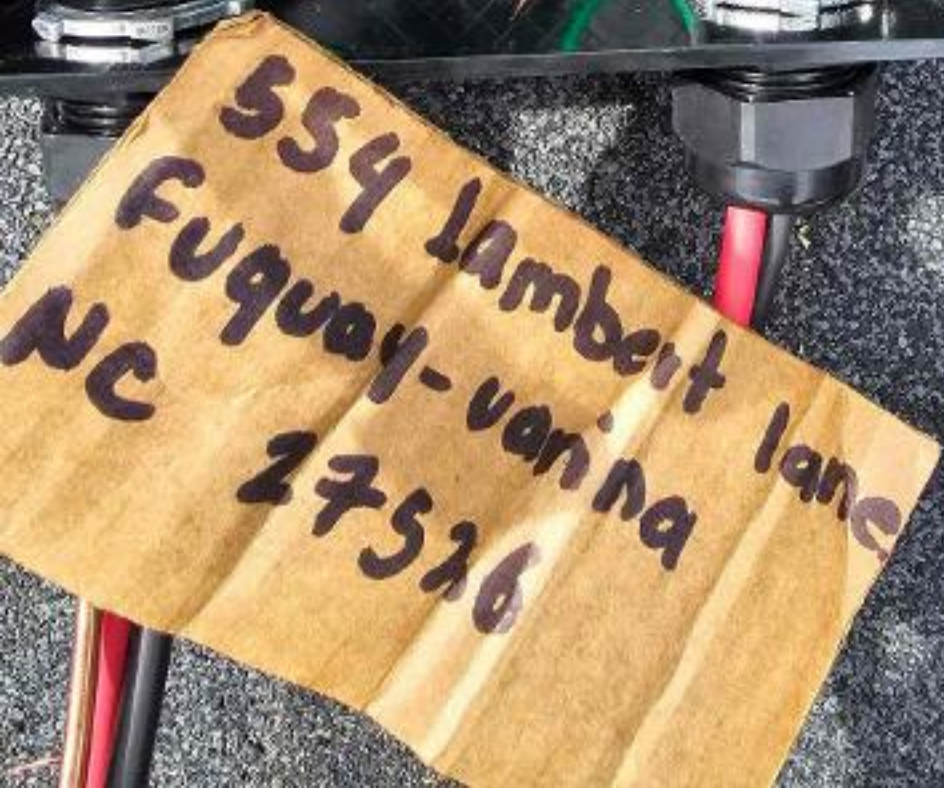 554 Lambert lane
Fuquay-varina
NC 27526